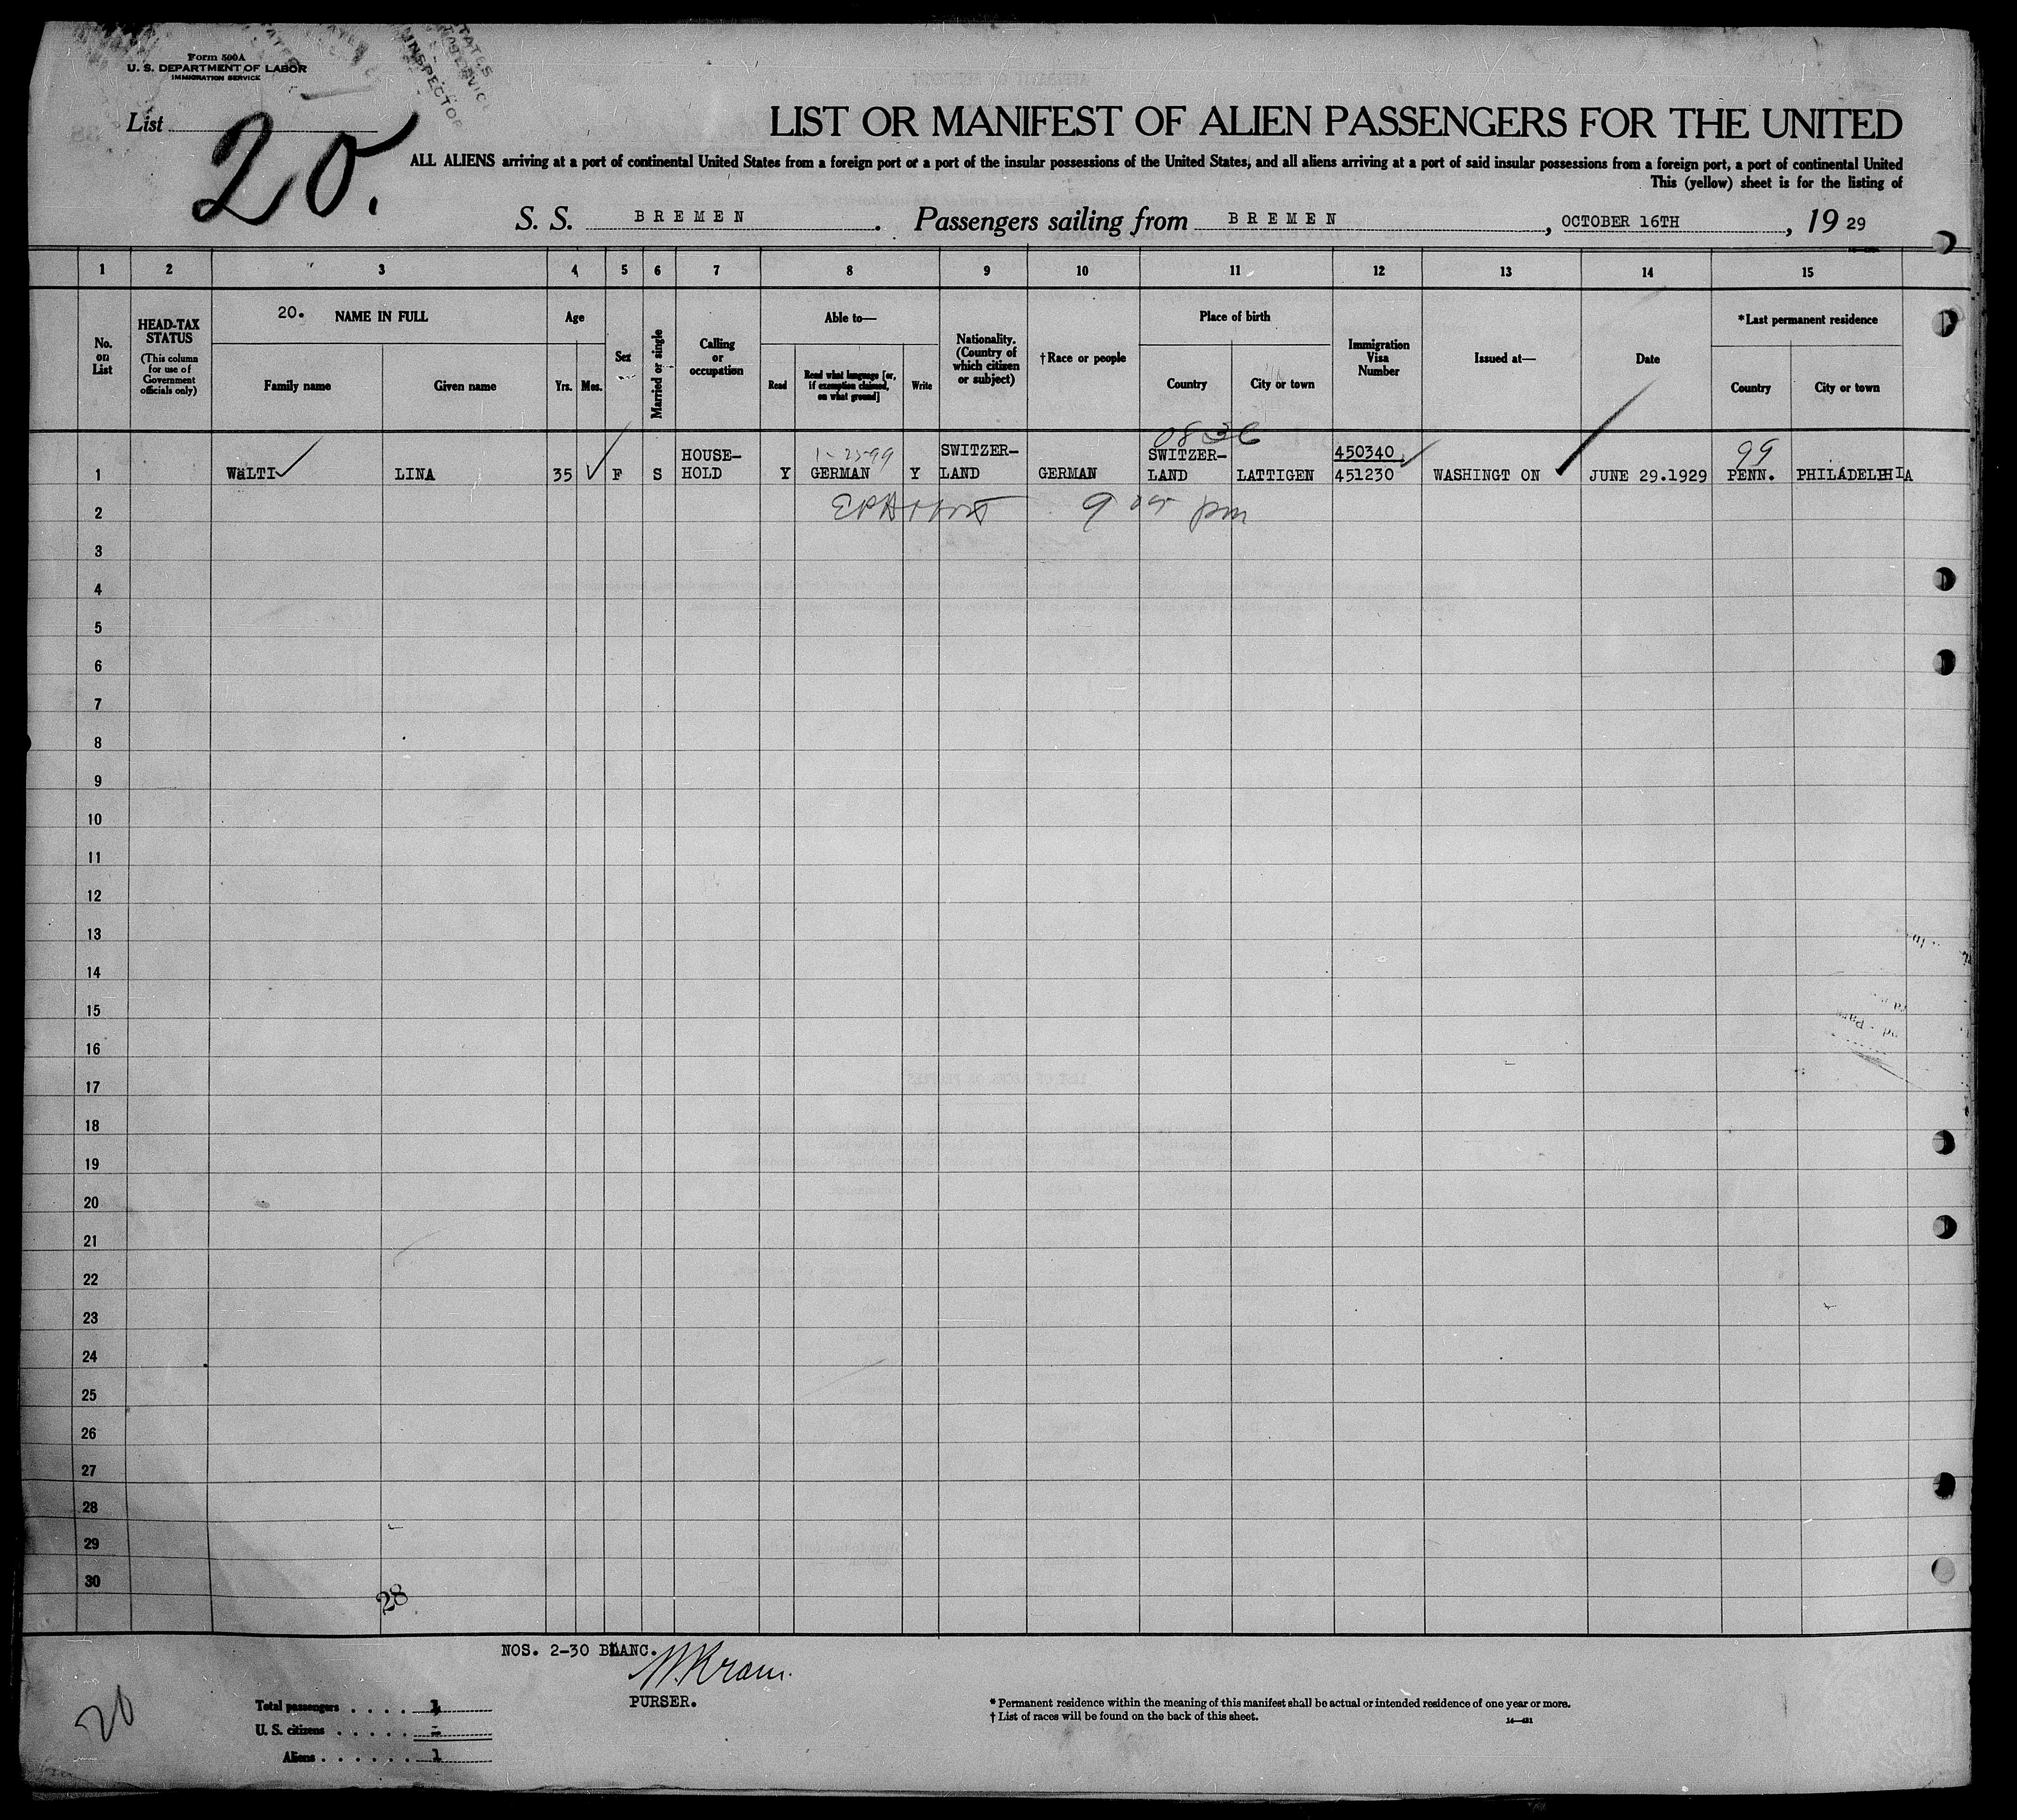 Form 500A
U. S. DEPARTMENT OF LABOR
IMMIGRATION SERVICE
INSPECTOR
List
20.
LIST OR MANIFEST OF ALIEN PASSENGERS FOR THE UNITED
ALL ALIENS arriving at a port of continental United States from a foreign port or a port of the insular possessions of the United States, and all aliens arriving at a port of said insular possessions from a foreign port, a port of continental United
This (yellow) sheet is for the listing of
S. S. BREMEN. Passengers sailing from BREMEN, OCTOBER 16TH, 19 29
1 2 3 4 5 6 7 8 9 10 11 12 13 14 15
No. on List
HEAD-TAX STATUS
(This column for use of Government officials only)
20. NAME IN FULL
Family name
Given name
Age
Yrs. Mos.
Sex
Married or single
Calling or occupation
Able to—
Read
Read what language [or, if exemption claimed, on what ground]
Write
Nationality. (Country of which citizen or subject)
†Race or people
Place of birth
Country
City or town
Immigration Visa Number
Issued at—
Date
*Last permanent residence
Country
City or town
1 WäLTI LINA 35 F S HOUSE-HOLD Y GERMAN Y SWITZER-LAND GERMAN SWITZER-LAND LATTIGEN 450340 451230 WASHINGT ON JUNE 29.1929 PENN. PHILADELPHIA
1-2599
99
2 9 05 pm
3
4
5
6
7
8
9
10
11
12
13
14
15
16
17
18
19
20
21
22
23
24
25
26
27
28
29
30
28
NOS. 2-30 BLANC.
PURSER.
20
Total passengers . . . . 1
U. S. citizens . . . . . -
Aliens . . . . . . 1
* Permanent residence within the meaning of this manifest shall be actual or intended residence of one year or more.
† List of races will be found on the back of this sheet.